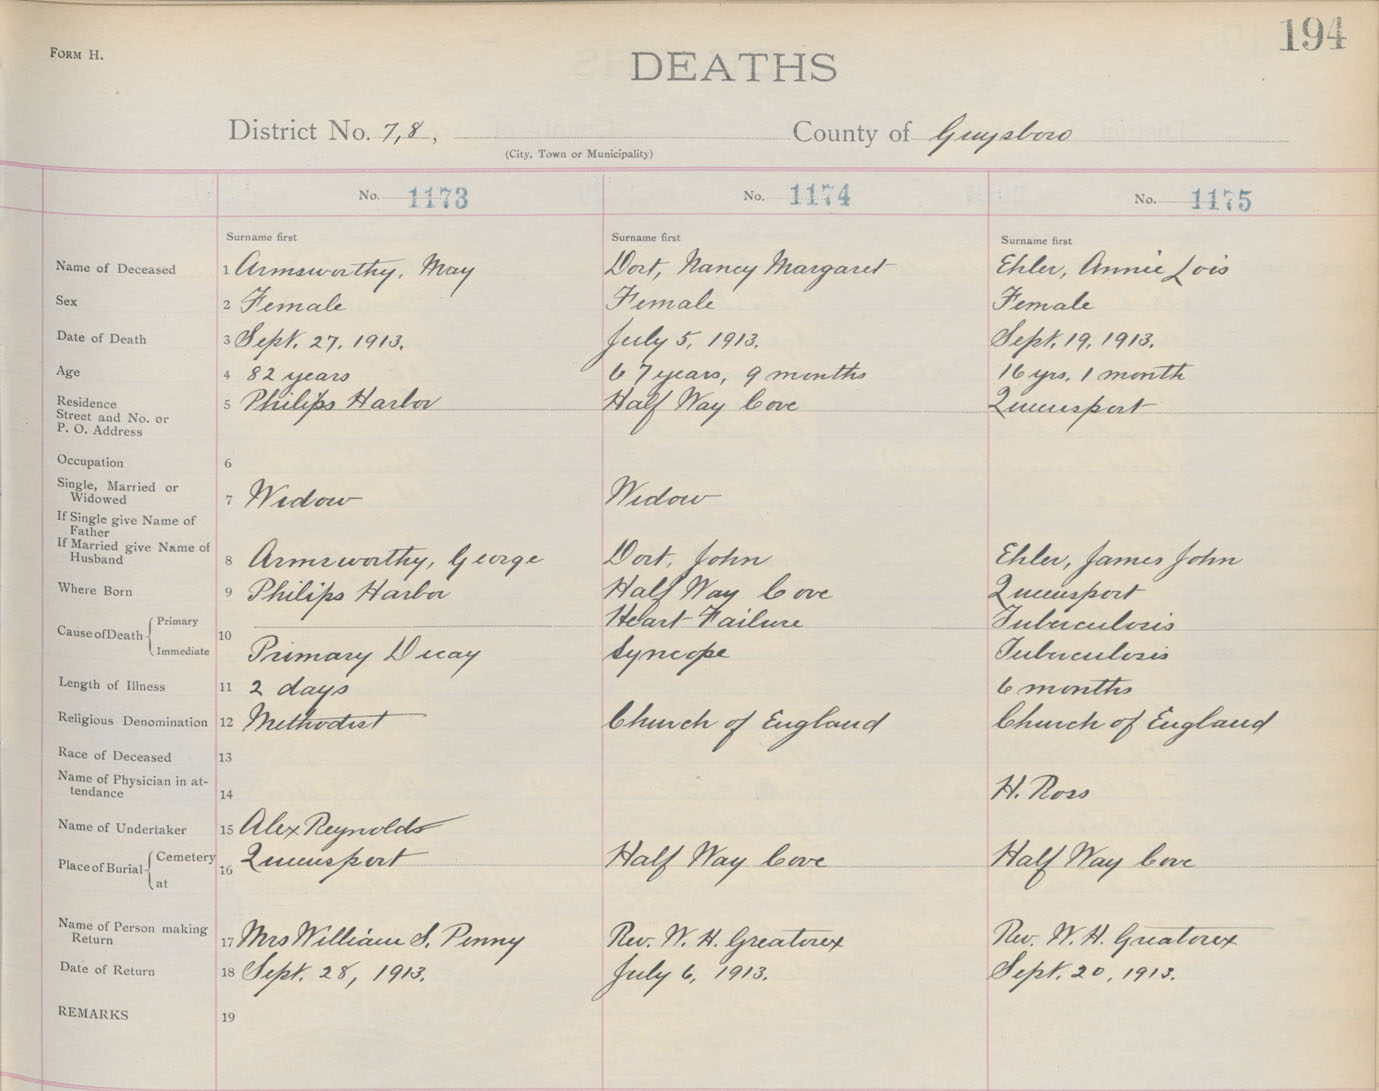 194
FORM H.
DEATHS
District No. 7,8, County of Guysboro
(City, Town or Municipality)
No. 1173 No. 1174 No. 1175
Surname first Surname first Surname first
Name of Deceased 1 Armsworthy, May Dort, Nancy Margaret Ehler, Annie Lois
Sex 2 Female Female Female
Date of Death 3 Sept. 27, 1913. July 5, 1913. Sept. 19, 1913.
Age 4 82 years 67 years, 9 months 16 yrs. 1 month
Residence 5 Philips Harbor Half Way Cove Queensport
Street and No. or
P. O. Address
Occupation 6
Single, Married or
Widowed 7 Widow Widow
If Single give Name of
Father
If Married give Name of
Husband 8 Armsworthy, George Dort, John Ehler, James John
Where Born 9 Philips Harbor Half Way Cove Queensport
Cause of Death Primary 10 Heart Failure Tuberculosis
Immediate Primary Decay Syncope Tuberculosis
Length of Illness 11 2 days 6 months
Religious Denomination 12 Methodist Church of England Church of England
Race of Deceased 13
Name of Physician in at-
tendance 14 H. Ross
Name of Undertaker 15 Alex Reynolds
Place of Burial Cemetery 16 Queensport Half Way Cove Half Way Cove
at
Name of Person making
Return 17 Mrs William S. Penny Rev. W. H. Greatorex Rev. W. H. Greatorex
Date of Return 18 Sept. 28, 1913. July 6, 1913. Sept. 20, 1913.
REMARKS 19